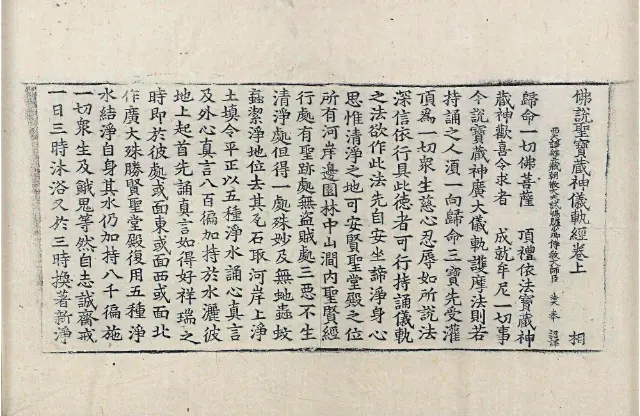 佛說聖寶藏神儀軌經卷上 相
西天譯經三藏朝散大夫試鴻臚卿傳教大師臣 法天奉 詔譯
歸命一切佛菩薩 頂禮依法寶藏神
藏神歡喜令求者 成就牟尼一切事
今說寶藏神廣大儀軌護摩法則若
持誦之人須一向歸命三寶先受灌
頂為一切衆生慈心忍辱如所說法
深信依行具此德者可行持誦儀軌
之法欲作此法先自安坐諦淨身心
思惟清淨之地可安賢聖堂殿之位
所有河岸邊園林中山澗內聖賢經
行處有聖跡處無盜賊處三惡不生
清淨處但得一處殊妙及無地蟲蚊
蝱潔淨地位去其瓦石取河岸上淨
土填令平正以五種淨水誦心真言
及外心真言八百徧加持於水灑彼
地上起首先誦真言如得好祥瑞之
時即於彼處或面東或面西或面北
作廣大殊勝賢聖堂殿復用五種淨
水結淨自身其水仍加持八千徧施
一切衆生及餓鬼等然自志誠齋戒
一日三時沐浴又於三時換著新淨